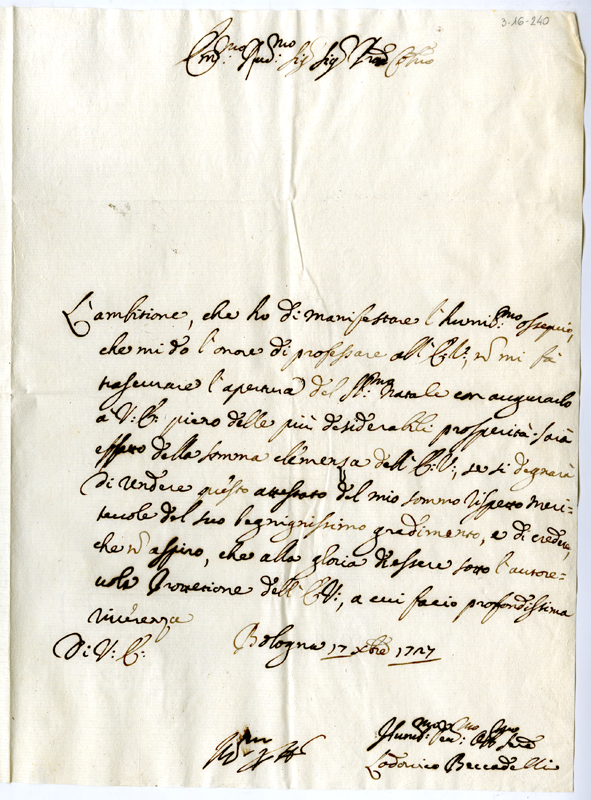 3-16-240
Em.mo Rev.mo Sig. Sig. Pron Col.mo
L'ambitione, che ho di manifestare l'humil.mo ossequio,
che mi do l'onore di professare all'E: V:, nõ mi fà
trascurare l'apertura del SS.mo Natale con augurarlo
à V: E: pieno delle più desiderabili prosperità. Sarà
effetto della somma clemenza dell'E: V:, se si degnarà
di rendere questo attestato del mio sommo rispetto meri-
tevole del suo begnignissimo gradimento, e di credere,
che nõ aspiro, che alla gloria d'essere sotto l'autore=
vole Protetione dell'E: V:, a cui facio profondissima
riverenza
Di V: E: Bologna 17 Xbre 1727
Humil.mo Dev.mo Obb.mo Serv
Lodovico Beccadelli